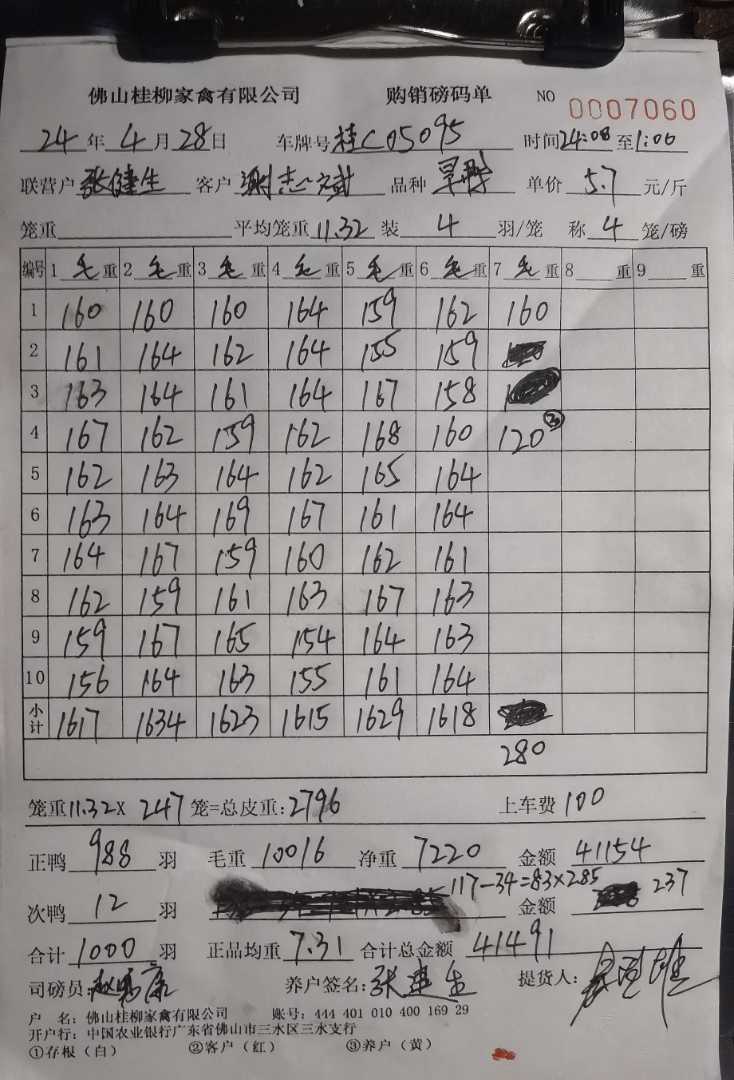 佛山桂柳家禽有限公司 购销磅码单 NO 0007060
24年4月28日 车牌号桂C05095 时间24:08至1:00
联营户张健生 客户谢志斌 品种 单价5.7元/斤
笼重 平均笼重11.32 装4羽/笼 称4笼/磅
编号 1毛重 2毛重 3毛重 4毛重 5毛重 6毛重 7毛重 8重 9重
1 160 160 160 164 159 162 160
2 161 164 162 164 155 159
3 163 164 161 164 167 158
4 167 162 159 162 168 160 120③
5 162 163 164 162 165 164
6 163 164 169 167 161 164
7 164 167 159 160 162 161
8 162 159 161 163 167 163
9 159 167 165 154 164 163
10 156 164 163 155 161 164
小计 1617 1634 1623 1615 1629 1618
280
笼重11.32× 247笼=总皮重:2796 上车费100
正鸭988羽 毛重10016 净重7220 金额41154
次鸭12羽 117-34=83×285 金额 237
合计1000羽 正品均重7.31 合计总金额41491
司磅员: 养户签名:张建生 提货人:
户 名:佛山桂柳家禽有限公司 账号:444 401 010 400 169 29
开户行:中国农业银行广东省佛山市三水区三水支行
①存根(白) ②客户(红) ③养户(黄)